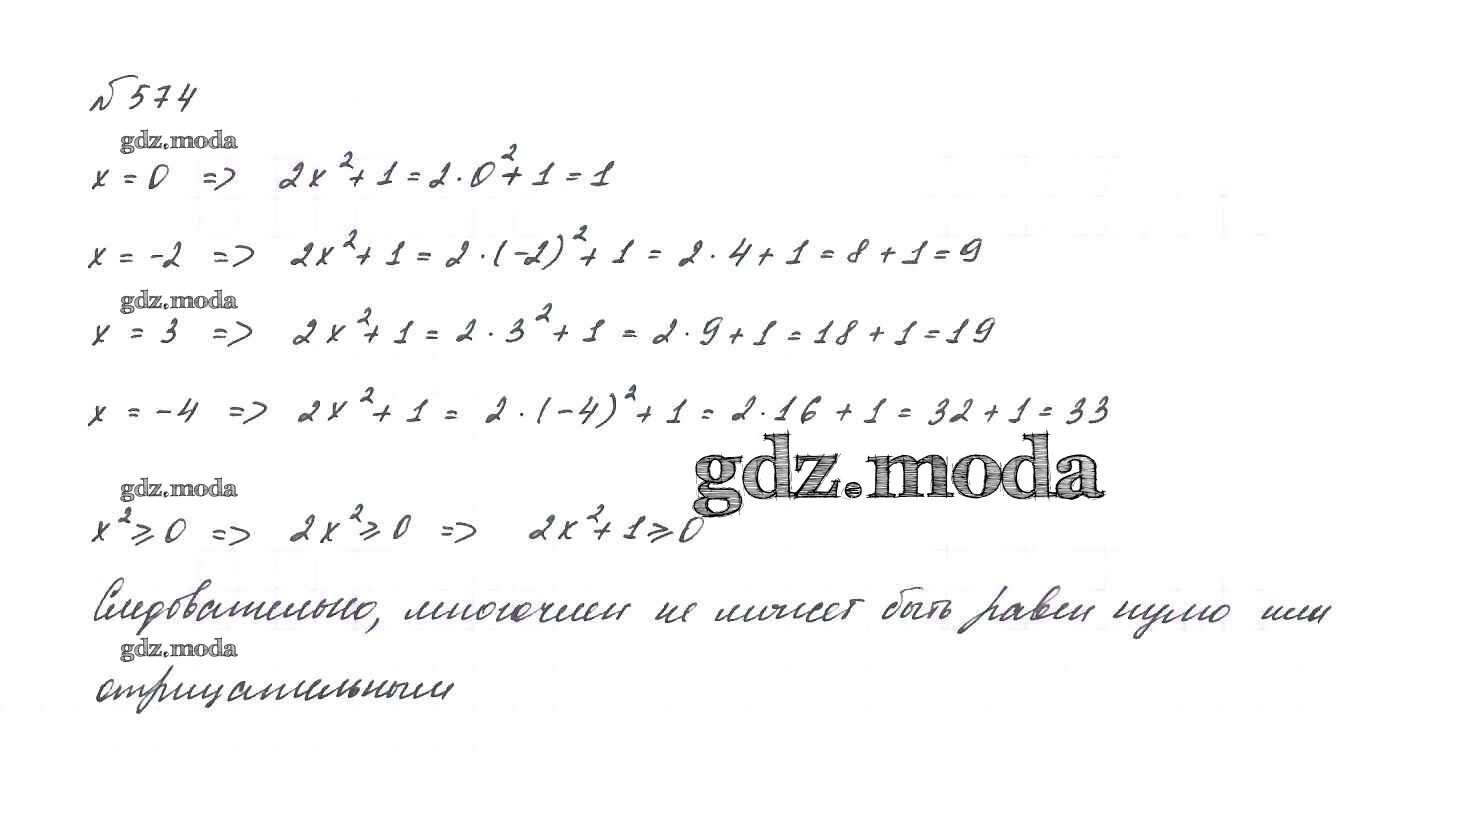 № 574
gdz.moda
x = 0 => 2x² + 1 = 2 · 0² + 1 = 1
x = -2 => 2x² + 1 = 2 · (-2)² + 1 = 2 · 4 + 1 = 8 + 1 = 9
gdz.moda
x = 3 => 2x² + 1 = 2 · 3² + 1 = 2 · 9 + 1 = 18 + 1 = 19
x = -4 => 2x² + 1 = 2 · (-4)² + 1 = 2 · 16 + 1 = 32 + 1 = 33
gdz.moda
gdz.moda
x² ⩾ 0 => 2x² ⩾ 0 => 2x² + 1 ⩾ 0
Следовательно, многочлен не может быть равен нулю или
gdz.moda
отрицательным